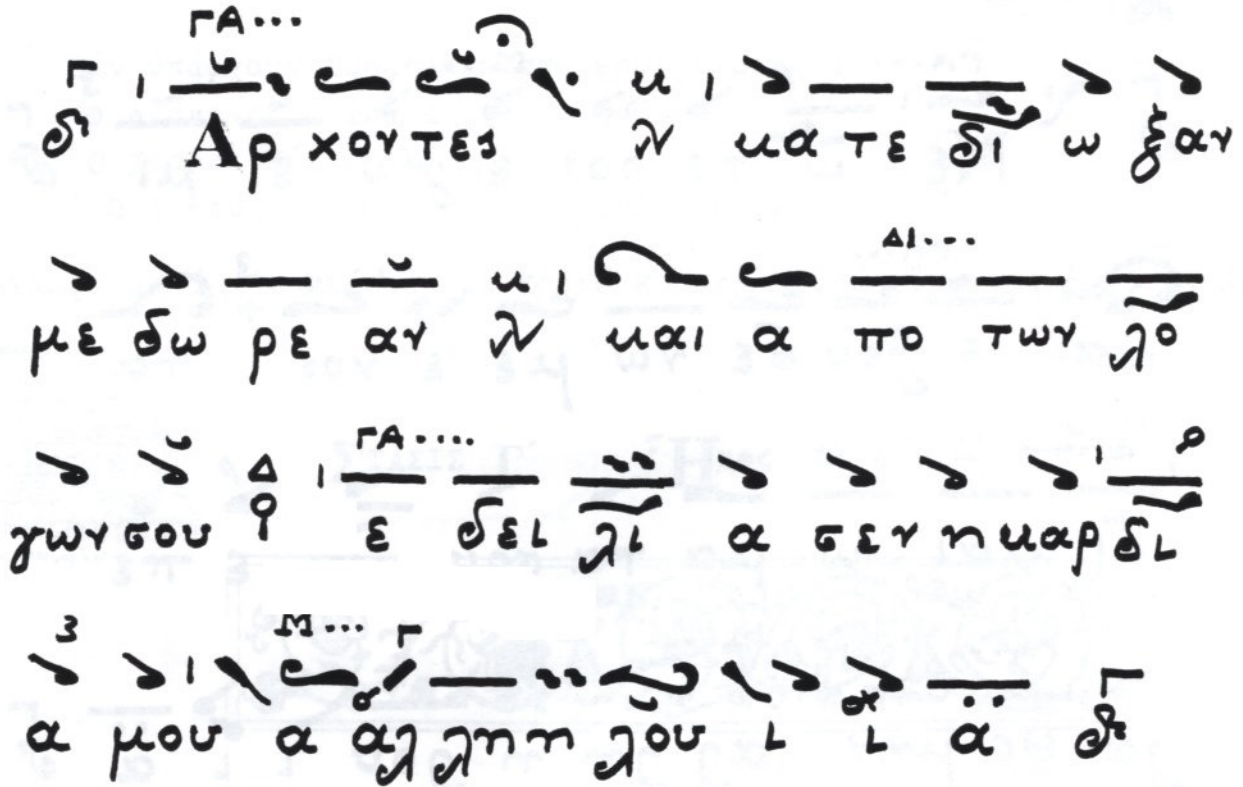 ΓΑ...
Αρ χον τες κα τε δι ω ξαν
με δω ρε αν και α πο των λο
ΔΙ...
γων σου ε δει λι α σεν η καρ δι
ΓΑ....
α μου α αλ λη η λου ι ι α
Μ...